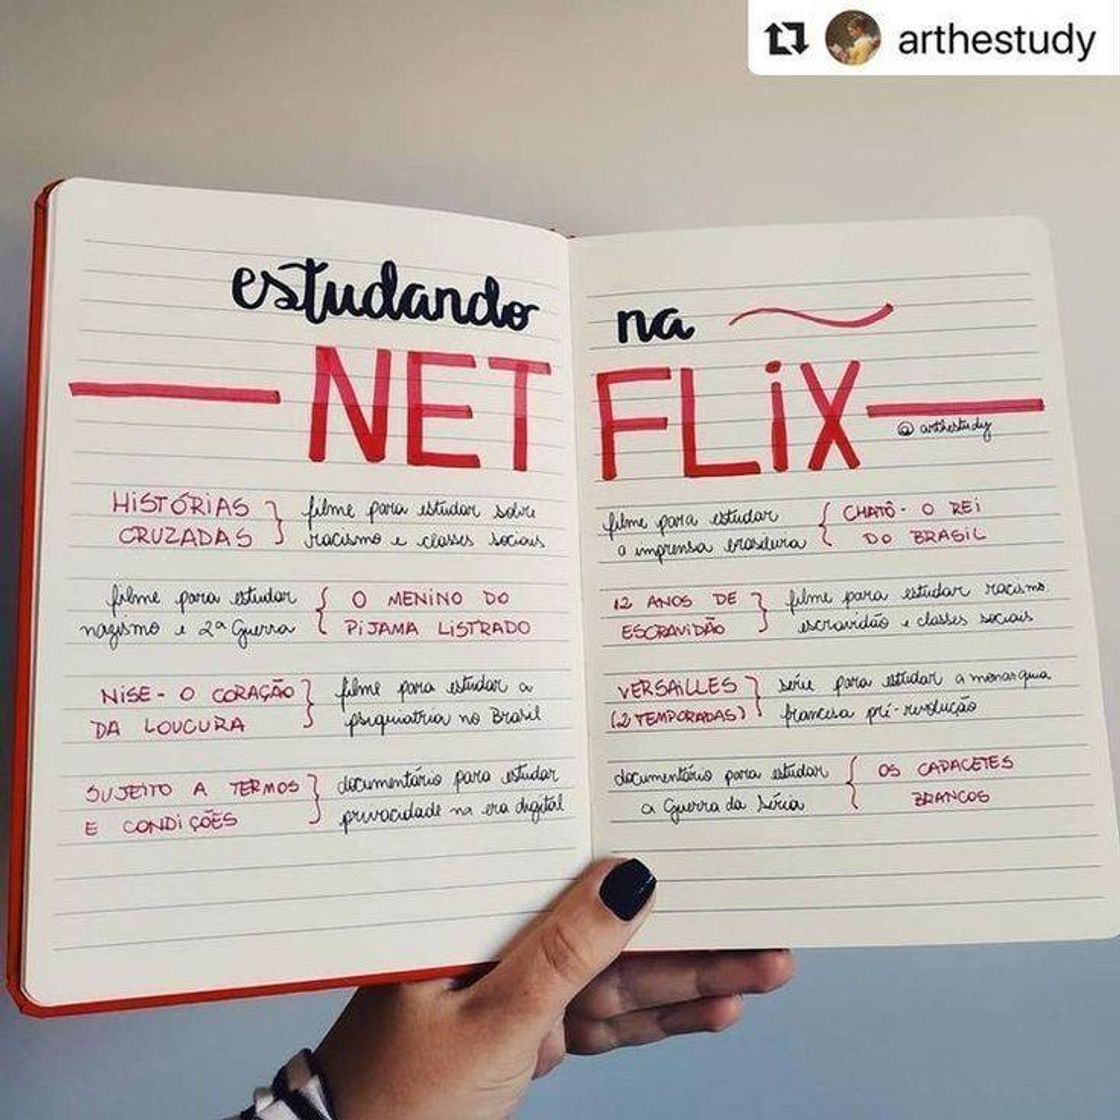 arthestudy
estudando na
NETFLiX
@arthestudy
HiSTÓRIAS
CRUZADAS
filme para estudar sobre
racismo e classes sociais
filme para estudar
nazismo e 2ª Guerra
O MENINO DO
PiJAMA LiSTRADO
NiSE - O CORAÇÃO
DA LOUCURA
filme para estudar a
psiquiatria no Brasil
SUJEITO A TERMOS
E CONDiÇÕES
documentário para estudar
privacidade na era digital
filme para estudar
a imprensa brasileira
CHATÔ - O REi
DO BRASiL
12 ANOS DE
ESCRAViDÃO
filme para estudar racismo,
escravidão e classes sociais
VERSAiLLES
(2 TEMPORADAS)
série para estudar a monarquia
francesa pré-revolução
documentário para estudar
a Guerra da Síria
OS CAPACETES
BRANCOS